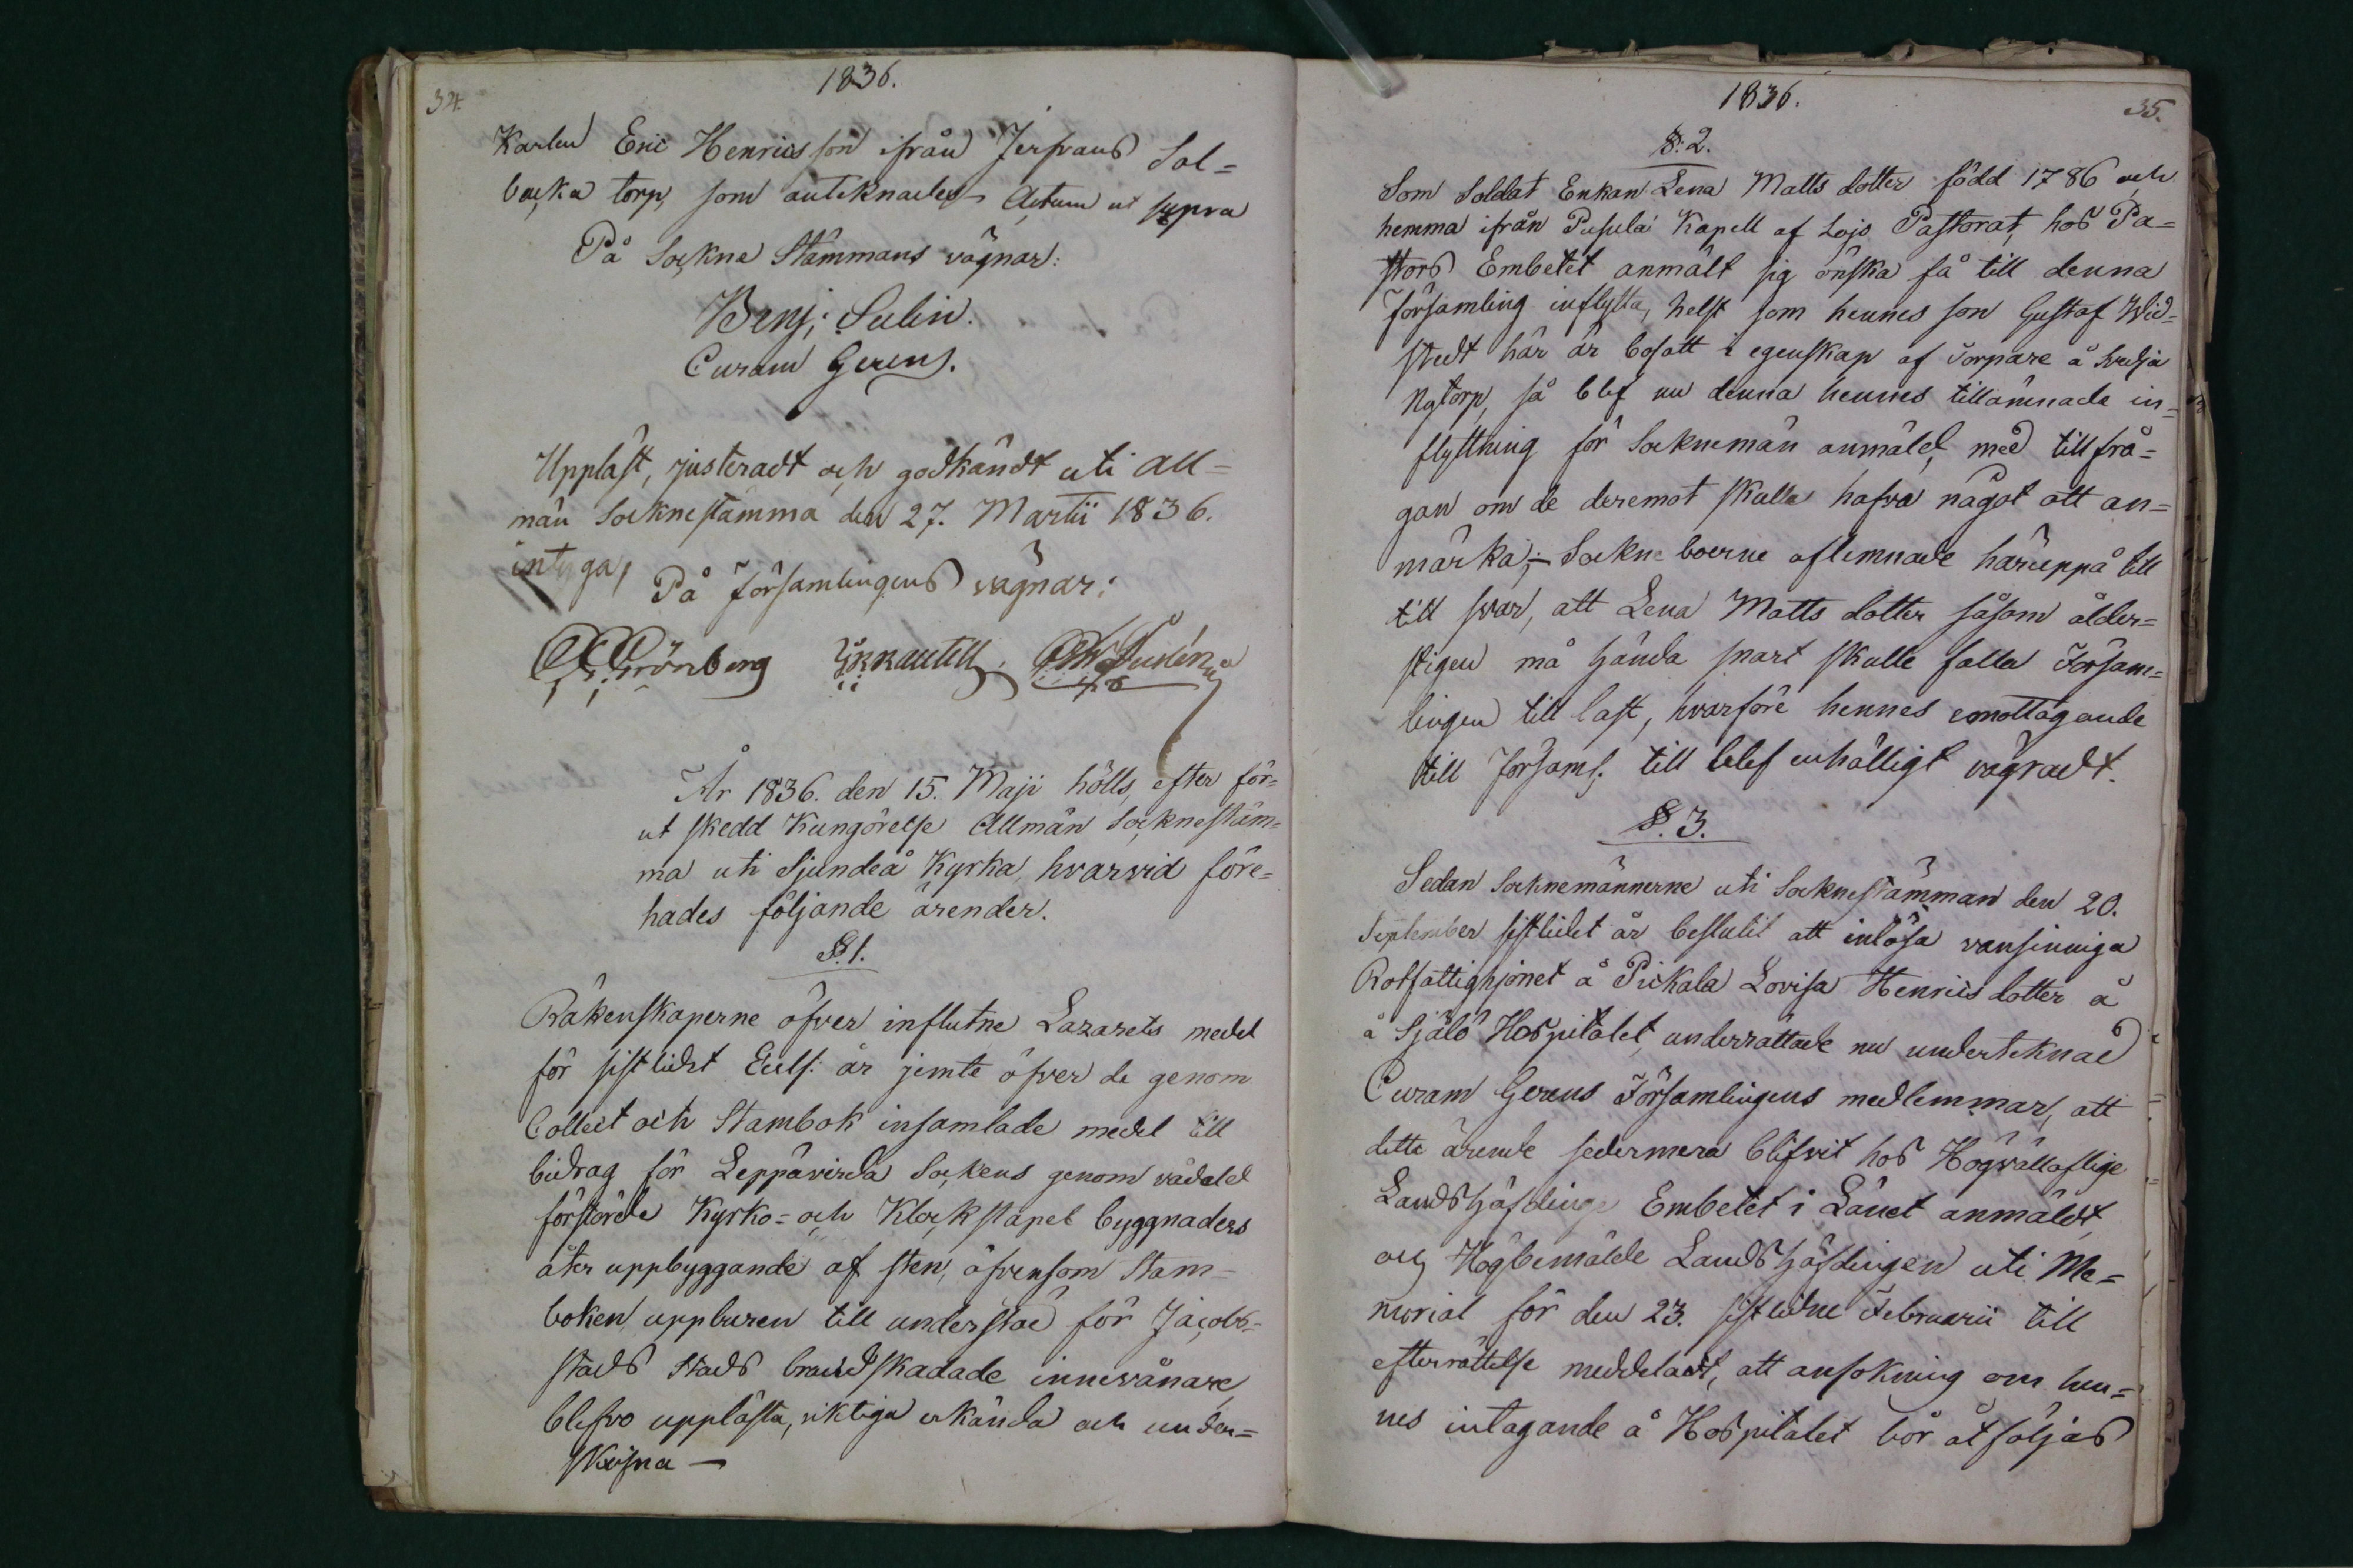 34.
1836.
Karlen Eric Henricsson ifrån Jerfvans Sol=
backa torp, som antecknades Actum ut supra
På Sockne Stämmans vägnar:
Benj: Sulin.
Curam Gerens.
Uppläst, justeradt och godkändt uti All=
män Socknestämma den 27. Martii 1836.
intyga,
På Församlingens vägnar:
Grönberg
År 1836. den 15. Maji hölls, efter för=
ut skedd Kungörelse Allmän Socknestäm=
ma uti Sjundeå Kyrka, hvarvid före=
hades följande ärender.
§. 1.
Räkenskaperne öfver influtne Lazarets medel
för sistlidet Eccls: år jemte öfver de genom
Collect och Stambok insamlade medel till
bidrag för Leppävirda Sockens genom vådeld
förstörde Kyrko= och Klockstapel byggnaders
åter uppbyggande af sten, äfvensom Stam-
boken uppburen till understöd för Jacobs=
stads Stads brandskadade innevånare
blefvo upplästa, riktiga erkända och under=
skrifna —
1836.
35.
§: 2.
Som Soldat Enkan Lena Matts dotter född 1786 och
hemma ifrån Pusula Kapell af Lojo Pastorat, hos Pa=
stors Embetet anmält sig önska få till denna
församling inflytta, helst som hennes son Gustaf Wid=
stedt här är bosatt i egenskap af Torpare å Svedja
Nytorp, så blef nu denna hennes tillämnade in=
flyttning för Socknemän anmäld, med tillfrå=
gan om de deremot skulle hafva något att an=
märka;- Sockneboerne aflemnade häruppå till
till svar, att Lena Matts dotter såsom ålder=
stigen må hända snart skulle falla Försam=
lingen till last, hvarföre hennes emottagande
till Församl: till blef enhälligt vägradt.
§. 3.
Sedan Socknemännerne uti Socknestämman den 20.
September sistlidet år beslutit att inlösa vansinniga
Rotfattighjonet å Pickala Lovisa Henricsdotter å
å Själö Hospitalet, underrättade nu undertecknad
Curam Gerens Församlingens medlemmar, att
detta ärende sedermera blifvit hos Högvälloflige
Landshöfdinge Embetet i Länet anmäldt,
och Högbemälde Landshöfdingen uti Me=
morial för den 23. sistledne Februarii till
efterrättelse meddeladt, att ansökning om hen=
nes intagande å Hospitalet bör åtföljas